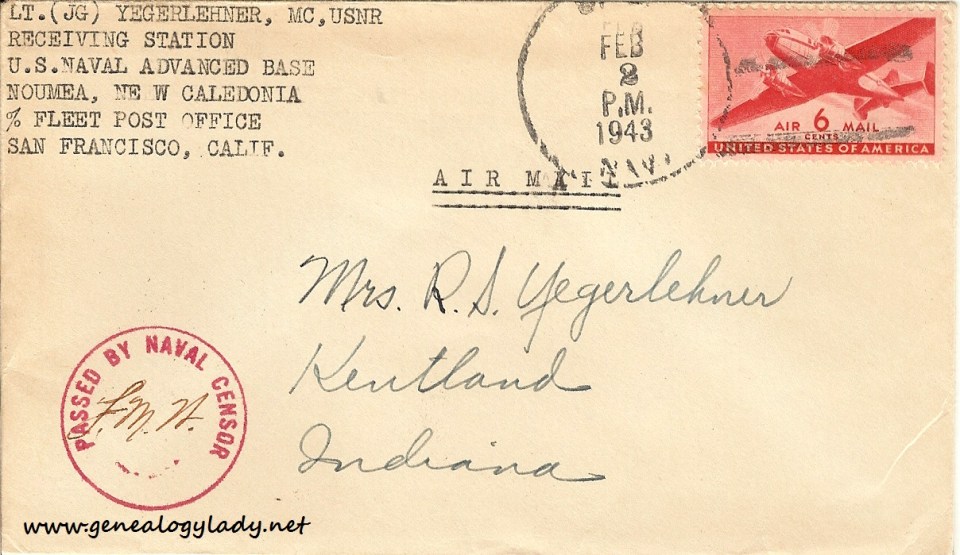 LT.(JG) YEGERLEHNER, MC,USNR
RECEIVING STATION
U.S.NAVAL ADVANCED BASE
NOUMEA, NE W CALEDONIA
% FLEET POST OFFICE
SAN FRANCISCO, CALIF.
FEB
2
P.M.
1943
NAVY
AIR 6 MAIL
CENTS
UNITED STATES OF AMERICA
AIR MAIL
Mrs. R. S. Yegerlehner
Kentland
Indiana
PASSED BY NAVAL CENSOR
www.genealogylady.net